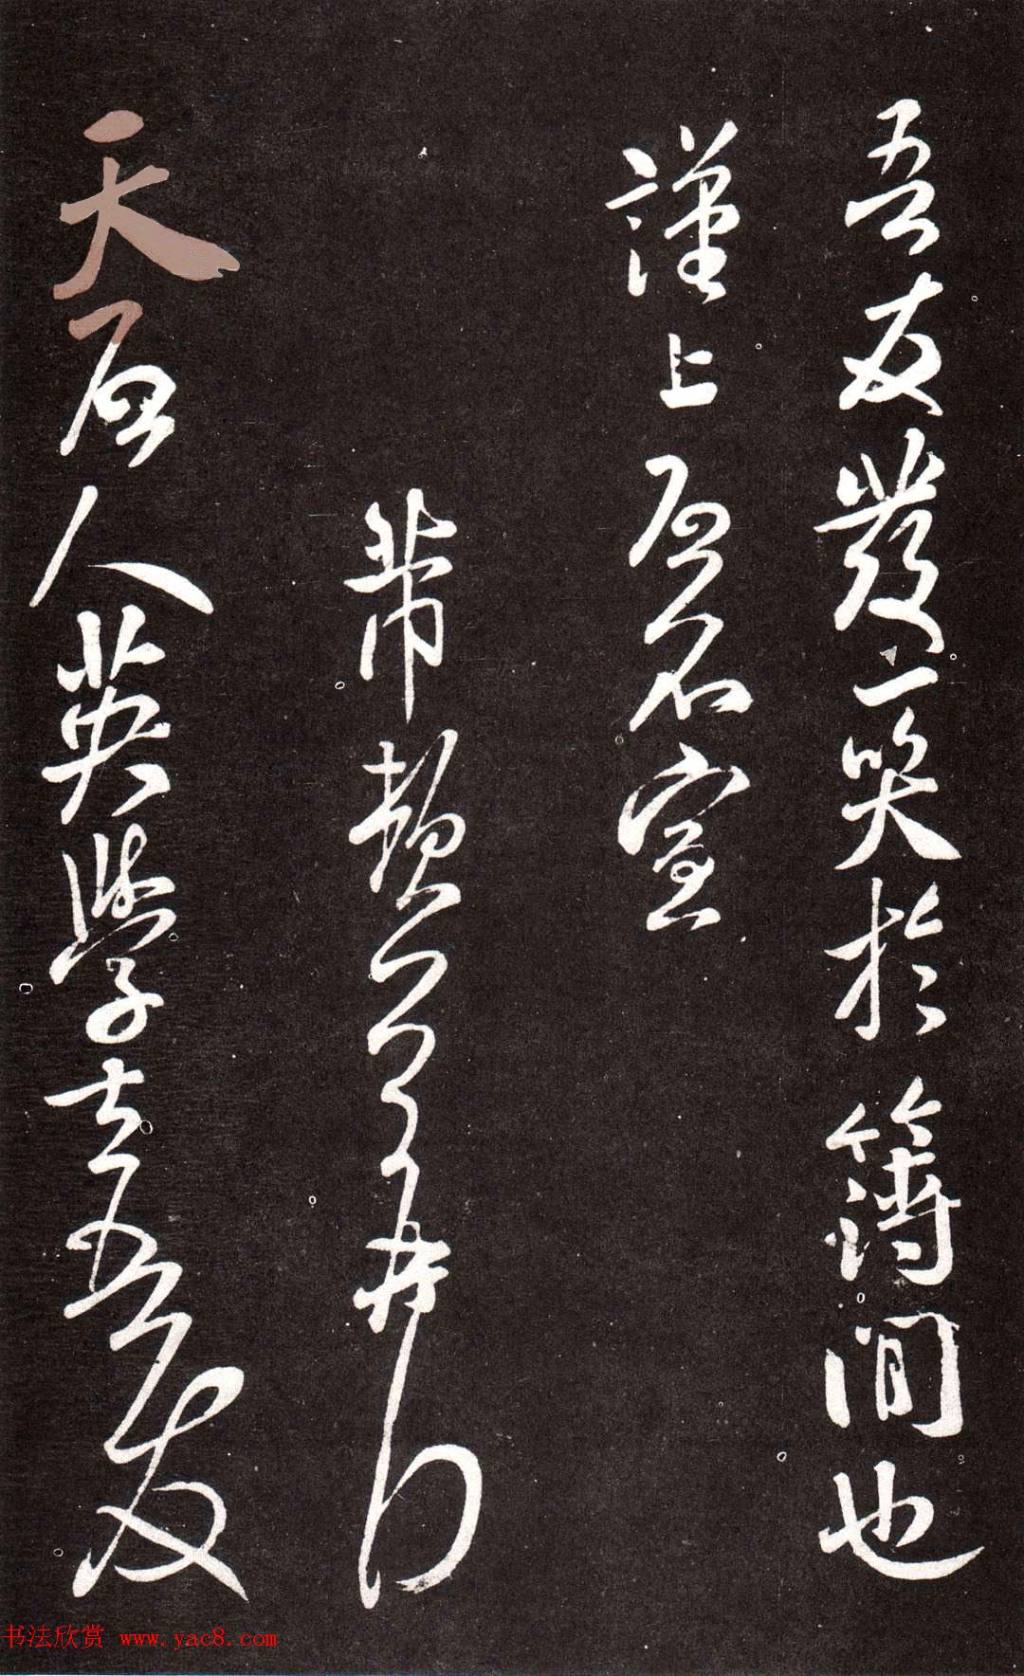 吾友發一笑於簿間也
謹上啓不宣
芾頓首再拜
天啓人英學士吾友
书法欣赏 www.yac8.com